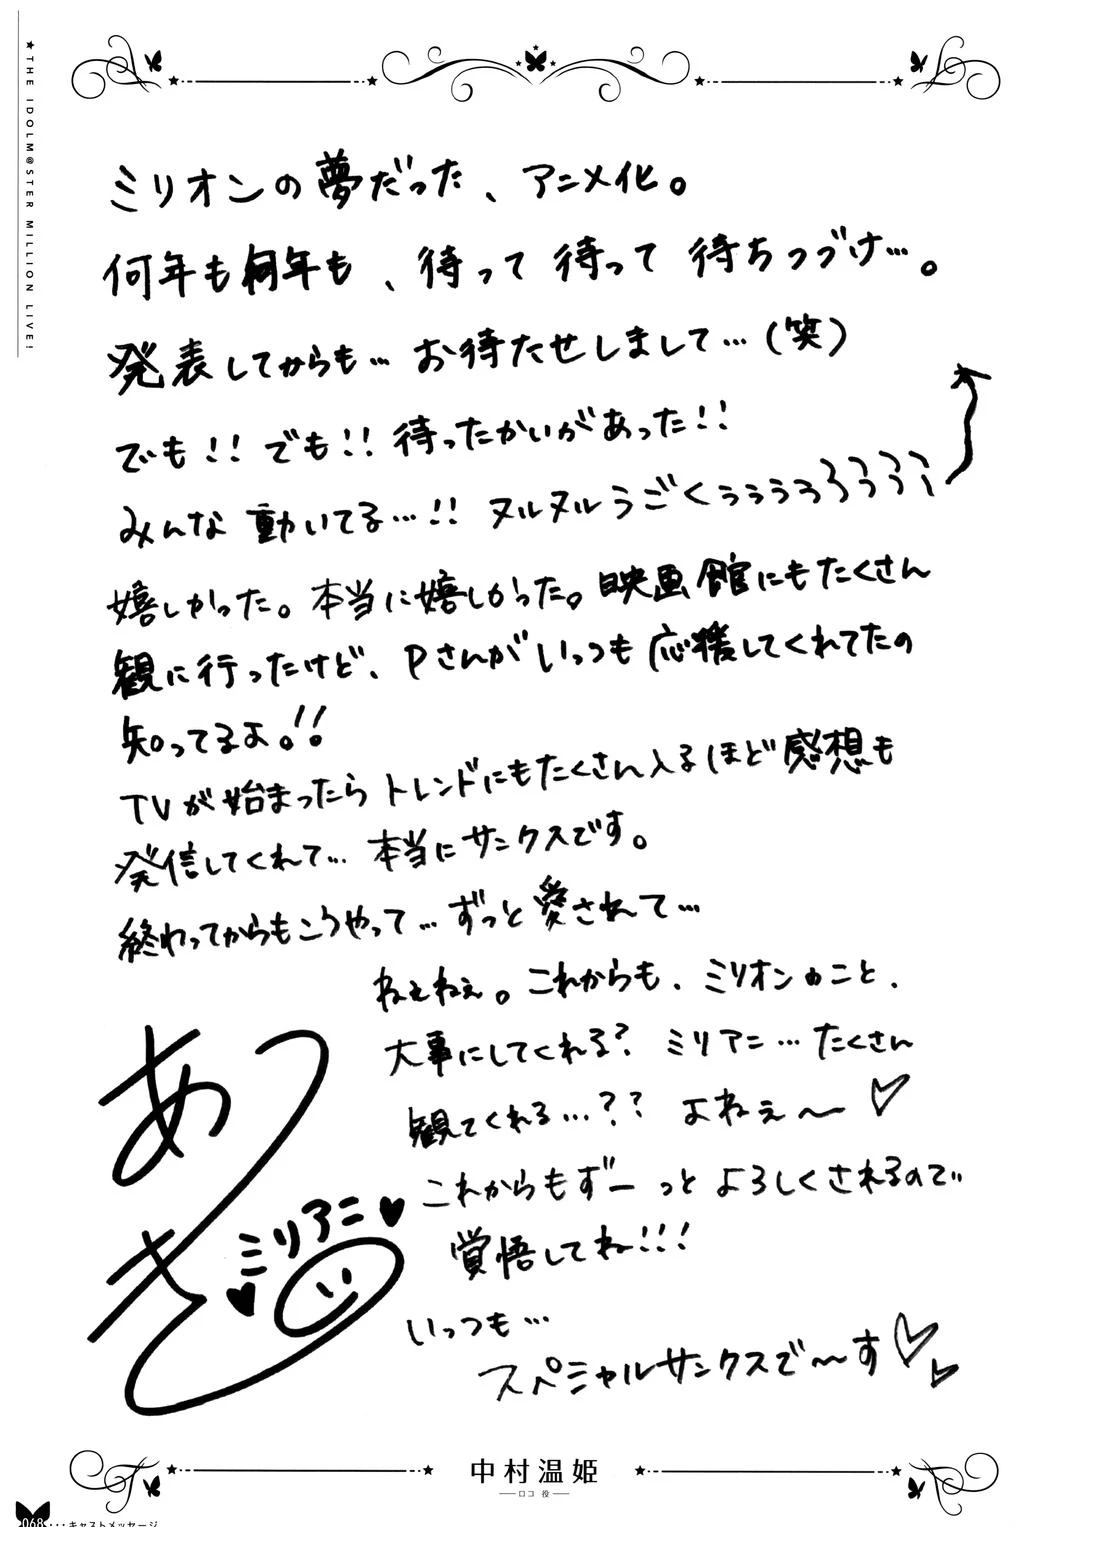 ★THE IDOLM@STER MILLION LIVE!
ミリオンの夢だった、アニメ化。
何年も何年も、待って待って待ちつづけ…。
発表してからも…お待たせしまして…(笑)
でも!!でも!!待ったかいがあった!!
みんな動いてる…!!ヌルヌルうごくぅぅぅぅぅぅぅぅ
嬉しかった。本当に嬉しかった。映画館にもたくさん
観に行ったけど、Pさんがいつも応援してくれてたの
知ってるよ。!!
TVが始まったらトレンドにもたくさん入るほど感想も
発信してくれて…本当にサンクスです。
終わってからもこうやって…ずっと愛されて…
ねぇねぇ。これからも、ミリオンのこと、
大事にしてくれる?ミリアニ…たくさん
観てくれる…??よねぇ〜♡
これからもずーっとよろしくされるので
覚悟してね!!!
いっつも…
スペシャルサンクスで〜す♡♡
あっき
♥ミリアニ♥
中村温姫
ロコ 役
068・・・キャストメッセージ